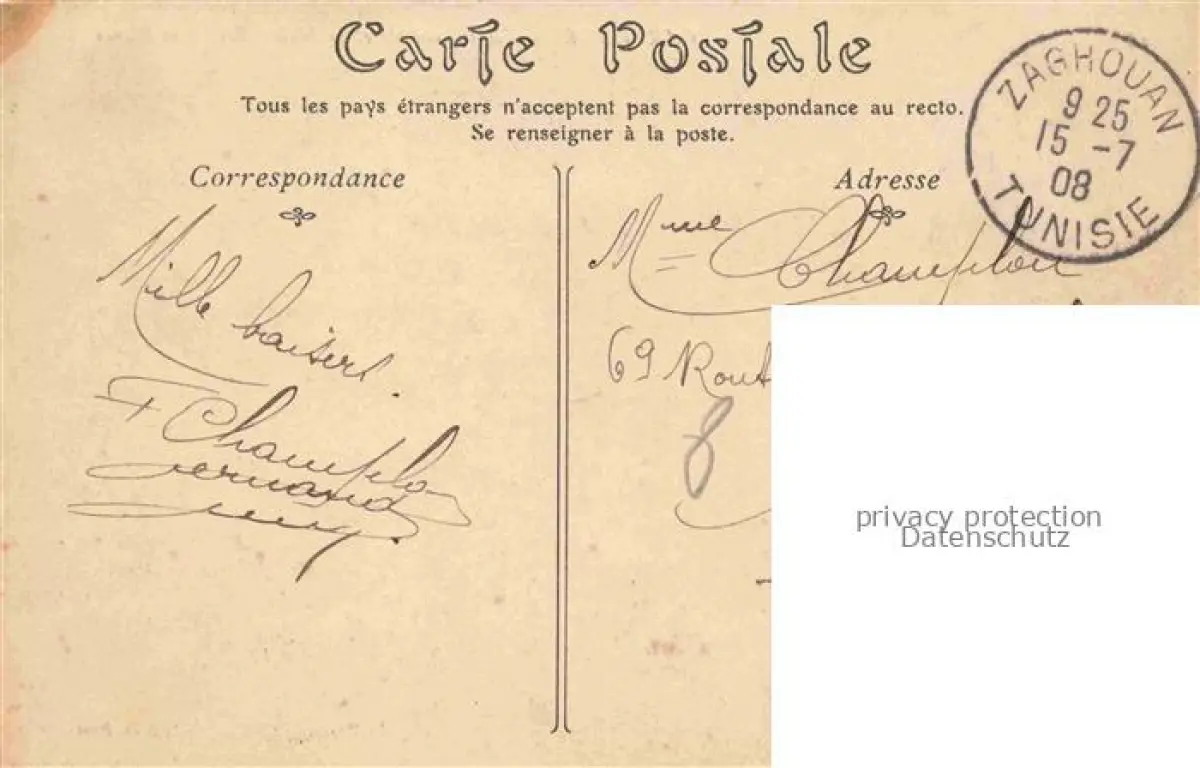 Carte Postale
Tous les pays étrangers n'acceptent pas la correspondance au recto.
Se renseigner à la poste.
ZAGHOUAN
9 25
15 -7
08
TUNISIE
Correspondance
Mille baisers.
F Champlon
Fernand
Adresse
Mme Champlon
69 Rout
8
privacy protection
Datenschutz